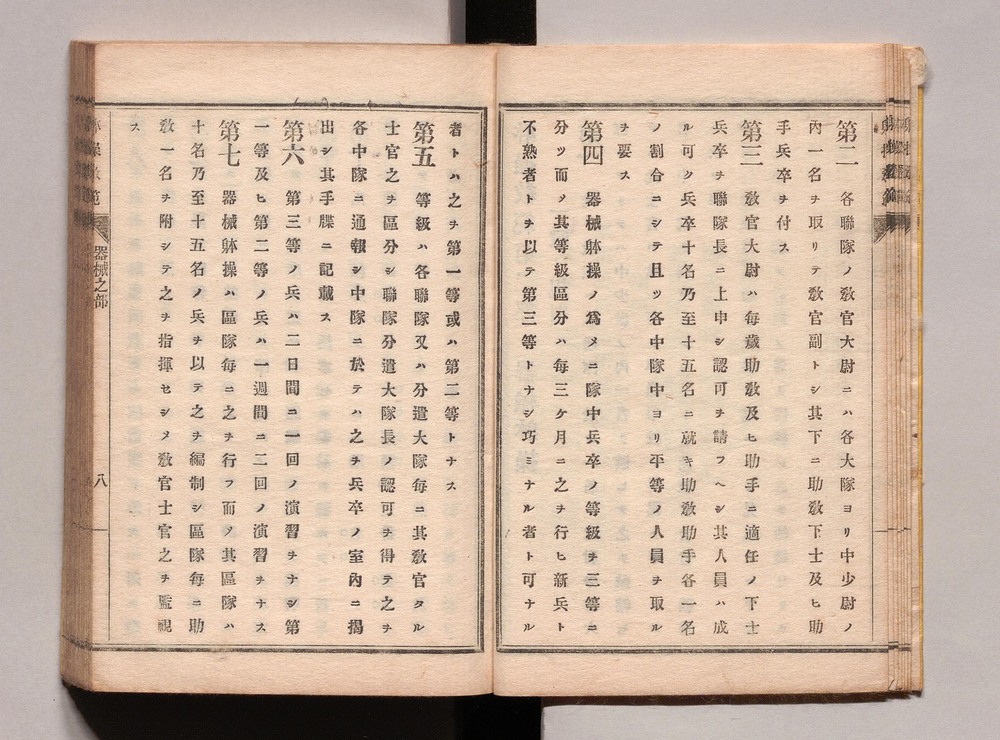 第二　各聯隊ノ敎官大尉ニハ各大隊ヨリ中少尉ノ
內一名ヲ取リテ敎官副トシ其下ニ助敎下士及ヒ助
手兵卒ヲ付ス
第三　敎官大尉ハ每歲助敎及ヒ助手ニ適任ノ下士
兵卒ヲ聯隊長ニ上申シ認可ヲ請フヘシ其人員ハ成
ル可ク兵卒十名乃至十五名ニ就キ助敎助手各一名
ノ割合ニシテ且ツ各中隊中ヨリ平等ノ人員ヲ取ル
ヲ要ス
第四　器械躰操ノ爲メニ隊中兵卒ノ等級ヲ三等ニ
分ツ而〆其等級區分ハ每三ケ月ニ之ヲ行ヒ新兵ト
不熟者トヲ以テ第三等トナシ巧ミナル者ト可ナル
者トハ之ヲ第一等或ハ第二等トナス
第五　等級ハ各聯隊又ハ分遣大隊每ニ其敎官タル
士官之ヲ區分シ聯隊分遣大隊長ノ認可ヲ得テ之ヲ
各中隊ニ通報シ中隊ニ於テハ之ヲ兵卒ノ室內ニ揭
出シ其手牒ニ記載ス
第六　第三等ノ兵ハ二日間ニ一回ノ演習ヲナシ第
一等及ヒ第二等ノ兵ハ一週間ニ二回ノ演習ヲナス
第七　器械躰操ハ區隊每ニ之ヲ行フ而〆其區隊ハ
十名乃至十五名ノ兵ヲ以テ之ヲ編制シ區隊每ニ助
敎一名ヲ附シテ之ヲ指揮セシメ敎官士官之ヲ監視
ス
器械之部
八